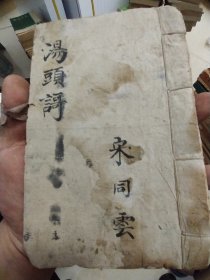 湯頭謌
宋同雲